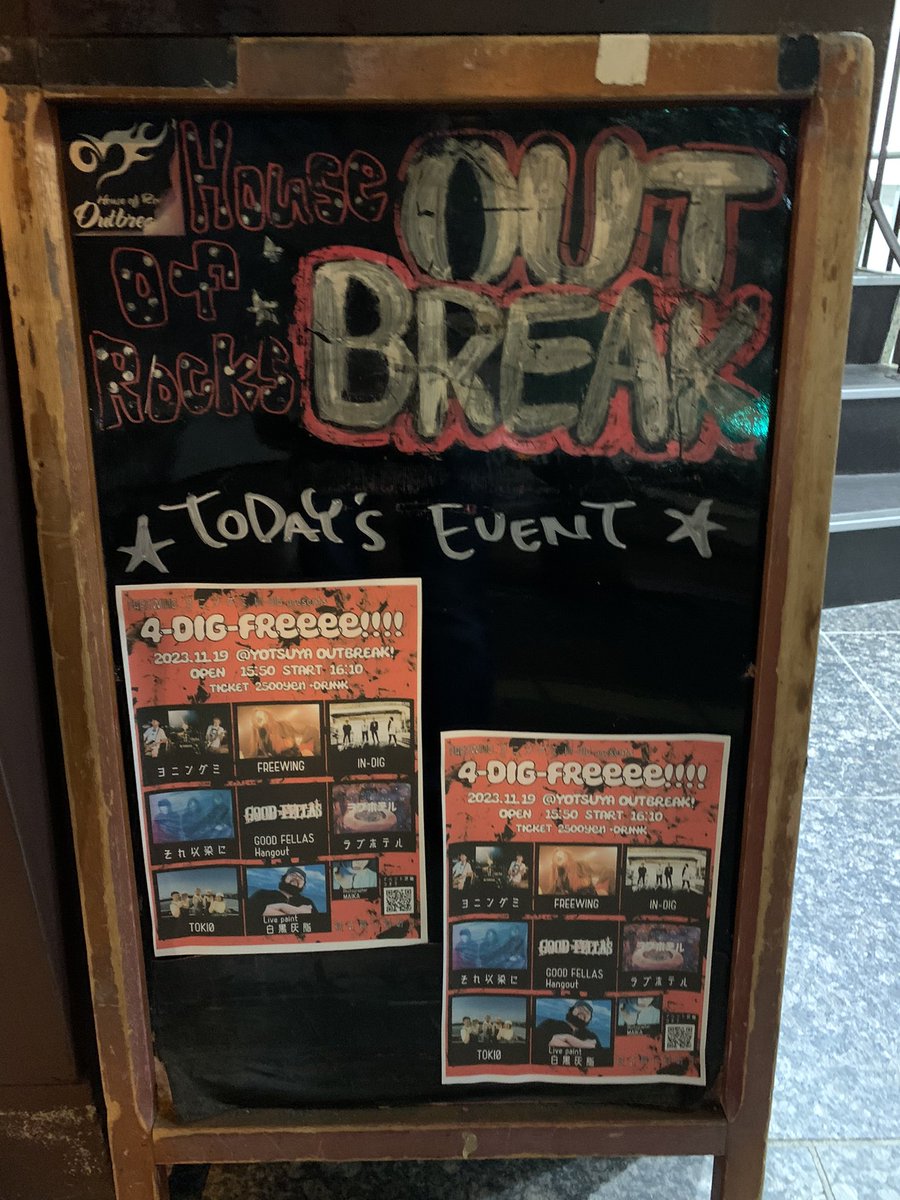 House of Ro
Outbrea
HOUSE
OF
ROCKS
OUT
BREAK
TODAY'S EVENT
4-DIG-FReeee!!!!
2023.11.19 @YOTSUYA OUTBREAK!
OPEN 15:50 START 16:10
TICKET 2500yen +DRINK
ヨニングミ
FREEWING
IN-DIG
それ以染に
GOOD FELLAS
GOOD FELLAS
Hangout
ラブホテル
ラブホテル
TOKI0
Live paint
白黒灰脂
MAIKA
4-DIG-FReeee!!!!
2023.11.19 @YOTSUYA OUTBREAK!
OPEN 15:50 START 16:10
TICKET 2500yen +DRINK
ヨニングミ
FREEWING
IN-DIG
それ以染に
GOOD FELLAS
GOOD FELLAS
Hangout
ラブホテル
ラブホテル
TOKI0
Live paint
白黒灰脂
MAIKA